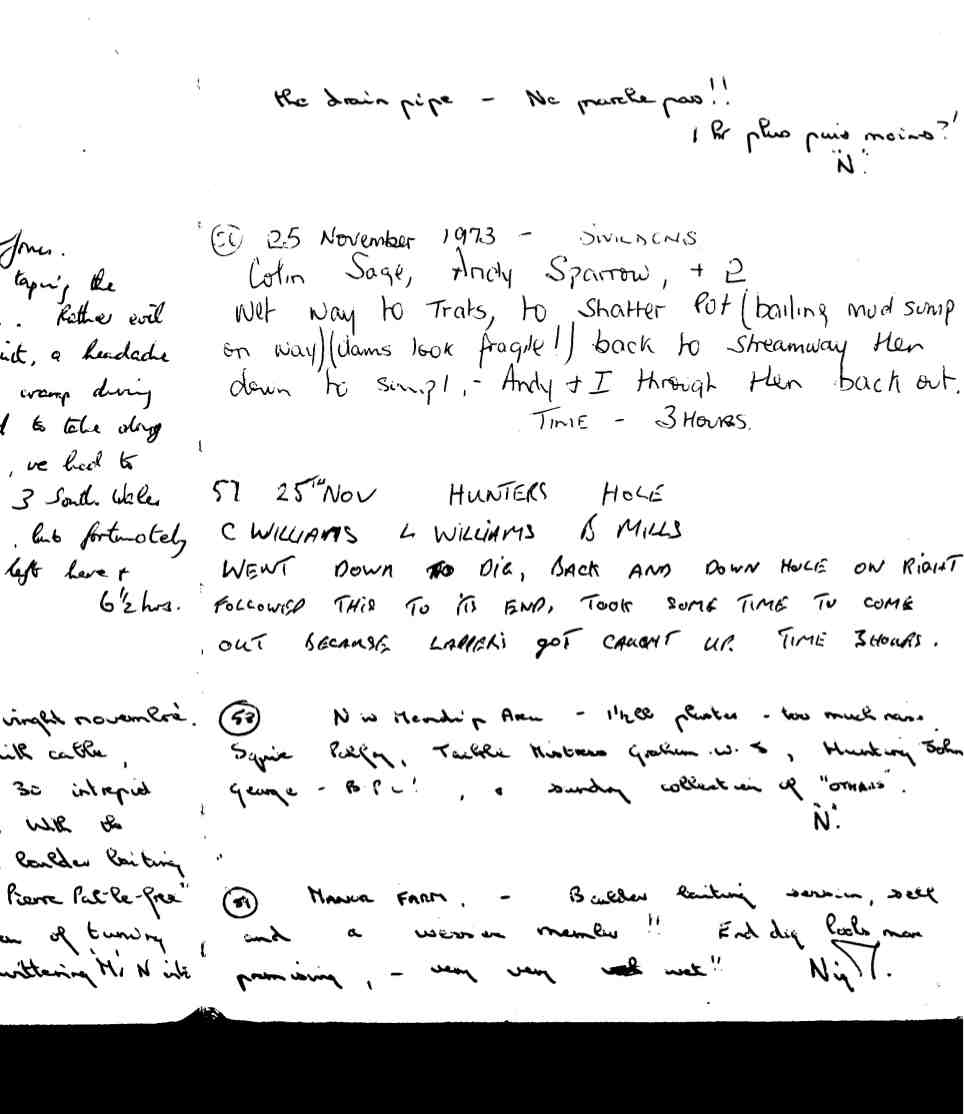 the drain pipe - Ne marche pas!!
1 hr plus puis moins?'
"N".
Jones.
taping the
. . Rather evil
, a headache
cramp during
to take along
, we had to
3 South Wales
. but fortunately
left here +
6½ hrs.
25 November 1973 -
Colin Sage, Andy Sparrow, + 2
Wet way to Trats, to Shatter Pot (bailing mud sump
on way) (dams look fragile!!) back to streamway then
down to sump 1, - Andy + I through then back out.
TIME - 3 HOURS.
57 25TH NOV HUNTERS HOLE
C WILLIAMS L WILLIAMS B MILLS
WENT DOWN TO DIG, BACK AND DOWN HOLE ON RIGHT
FOLLOWED THIS TO ITS END, TOOK SOME TIME TO COME
OUT BECAUSE LADDERS GOT CAUGHT UP. TIME 3 HOURS.
vinght novembré.
cable,
30 intrepid
. With
boulder baiting
Pierre
of
wittering Mr N
58 N W Mendip Area - - too much
Squire , Tackle Mistress Graham W. S, Hunting John
George - B.P.C! , a sundry collection of "OTHARS".
N".
59 MANOR FARM. - Boulder baiting session, self
and a wessex member!! End dig looks more
promising, - very very wet!! Nig